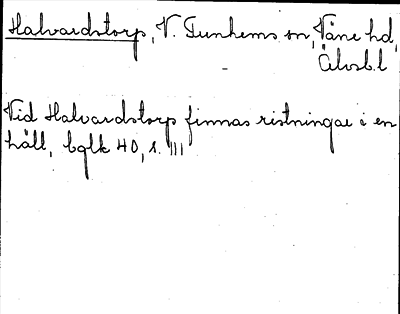 Halvardstorp, V. Tunhems sn, Väne hd,
Älvsb.l
Vid Halvardstorp finnas ristningar i en
häll, bglk 40, s. 111